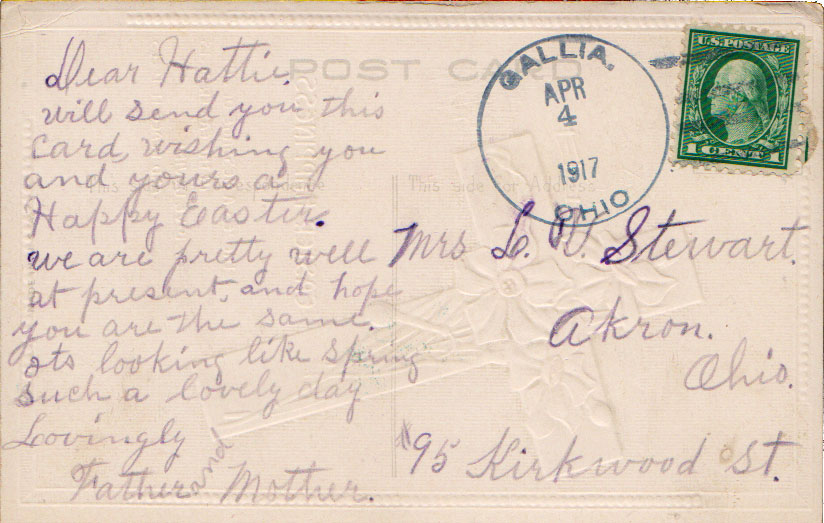 POST CARD
Dear Hattie.
will send you this
card, wishing you
and yours a
Happy Easter.
we are pretty well
at present, and hope
you are the same.
its looking like spring
such a lovely day
Lovingly
Father and Mother.
GALLIA.
APR
4
1917
OHIO
U.S. POSTAGE
1 CENT 1
This side for Address
Mrs L. W. Stewart.
Akron.
Ohio.
95 Kirkwood St.